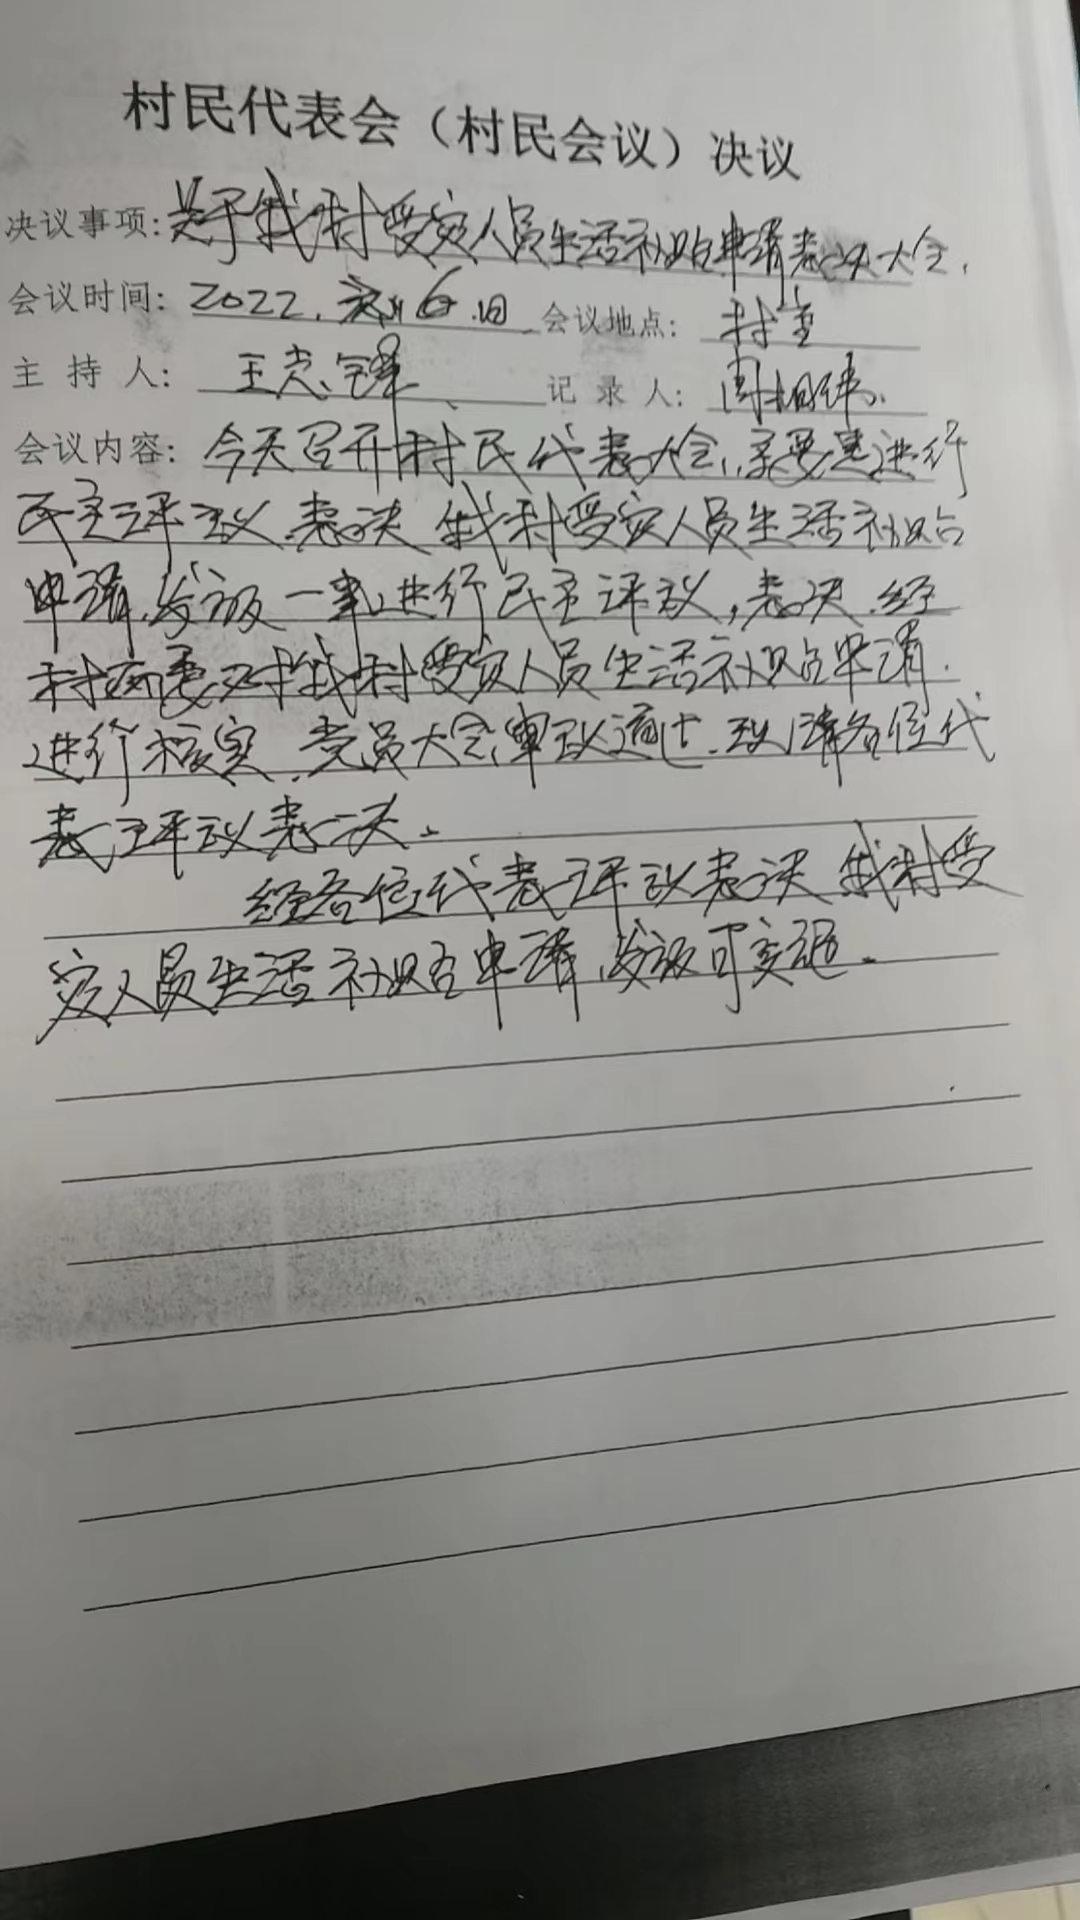 村民代表会（村民会议）决议
决议事项：关于我村受灾人员生活补贴申请表决大会.
会议时间：2022. 6.日 会议地点：村室
主持人：王志锋 记录人：周相伟
会议内容：今天召开村民代表大会,主要是进行
民主评议,表决 我村受灾人员生活补贴
申请,发放一事,进行民主评议,表决.经
村两委对我村受灾人员生活补贴申请.
进行核实,党员大会,审议通过.现请各位代
表,评议表决.
经各位代表评议表决 我村受
灾人员生活补贴申请,发放可实施.